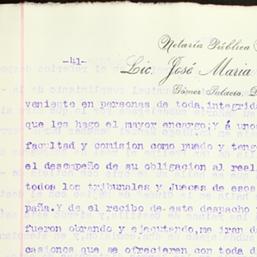 Notaría Pública
-41-
Lic. José Maria
Gómez Palacio, D
veniente en personas de toda,integrida
que les hago el mayor encargo;Y á unos
facultad y comision como puedo y teng
el desempeño de su obligacion al real
todos los tribunales y jueces de esos
paña.Y de el recibo de este despacho y
fueron obrando y ejecutando,me iran d
casiones que se ofrecieren con toda d